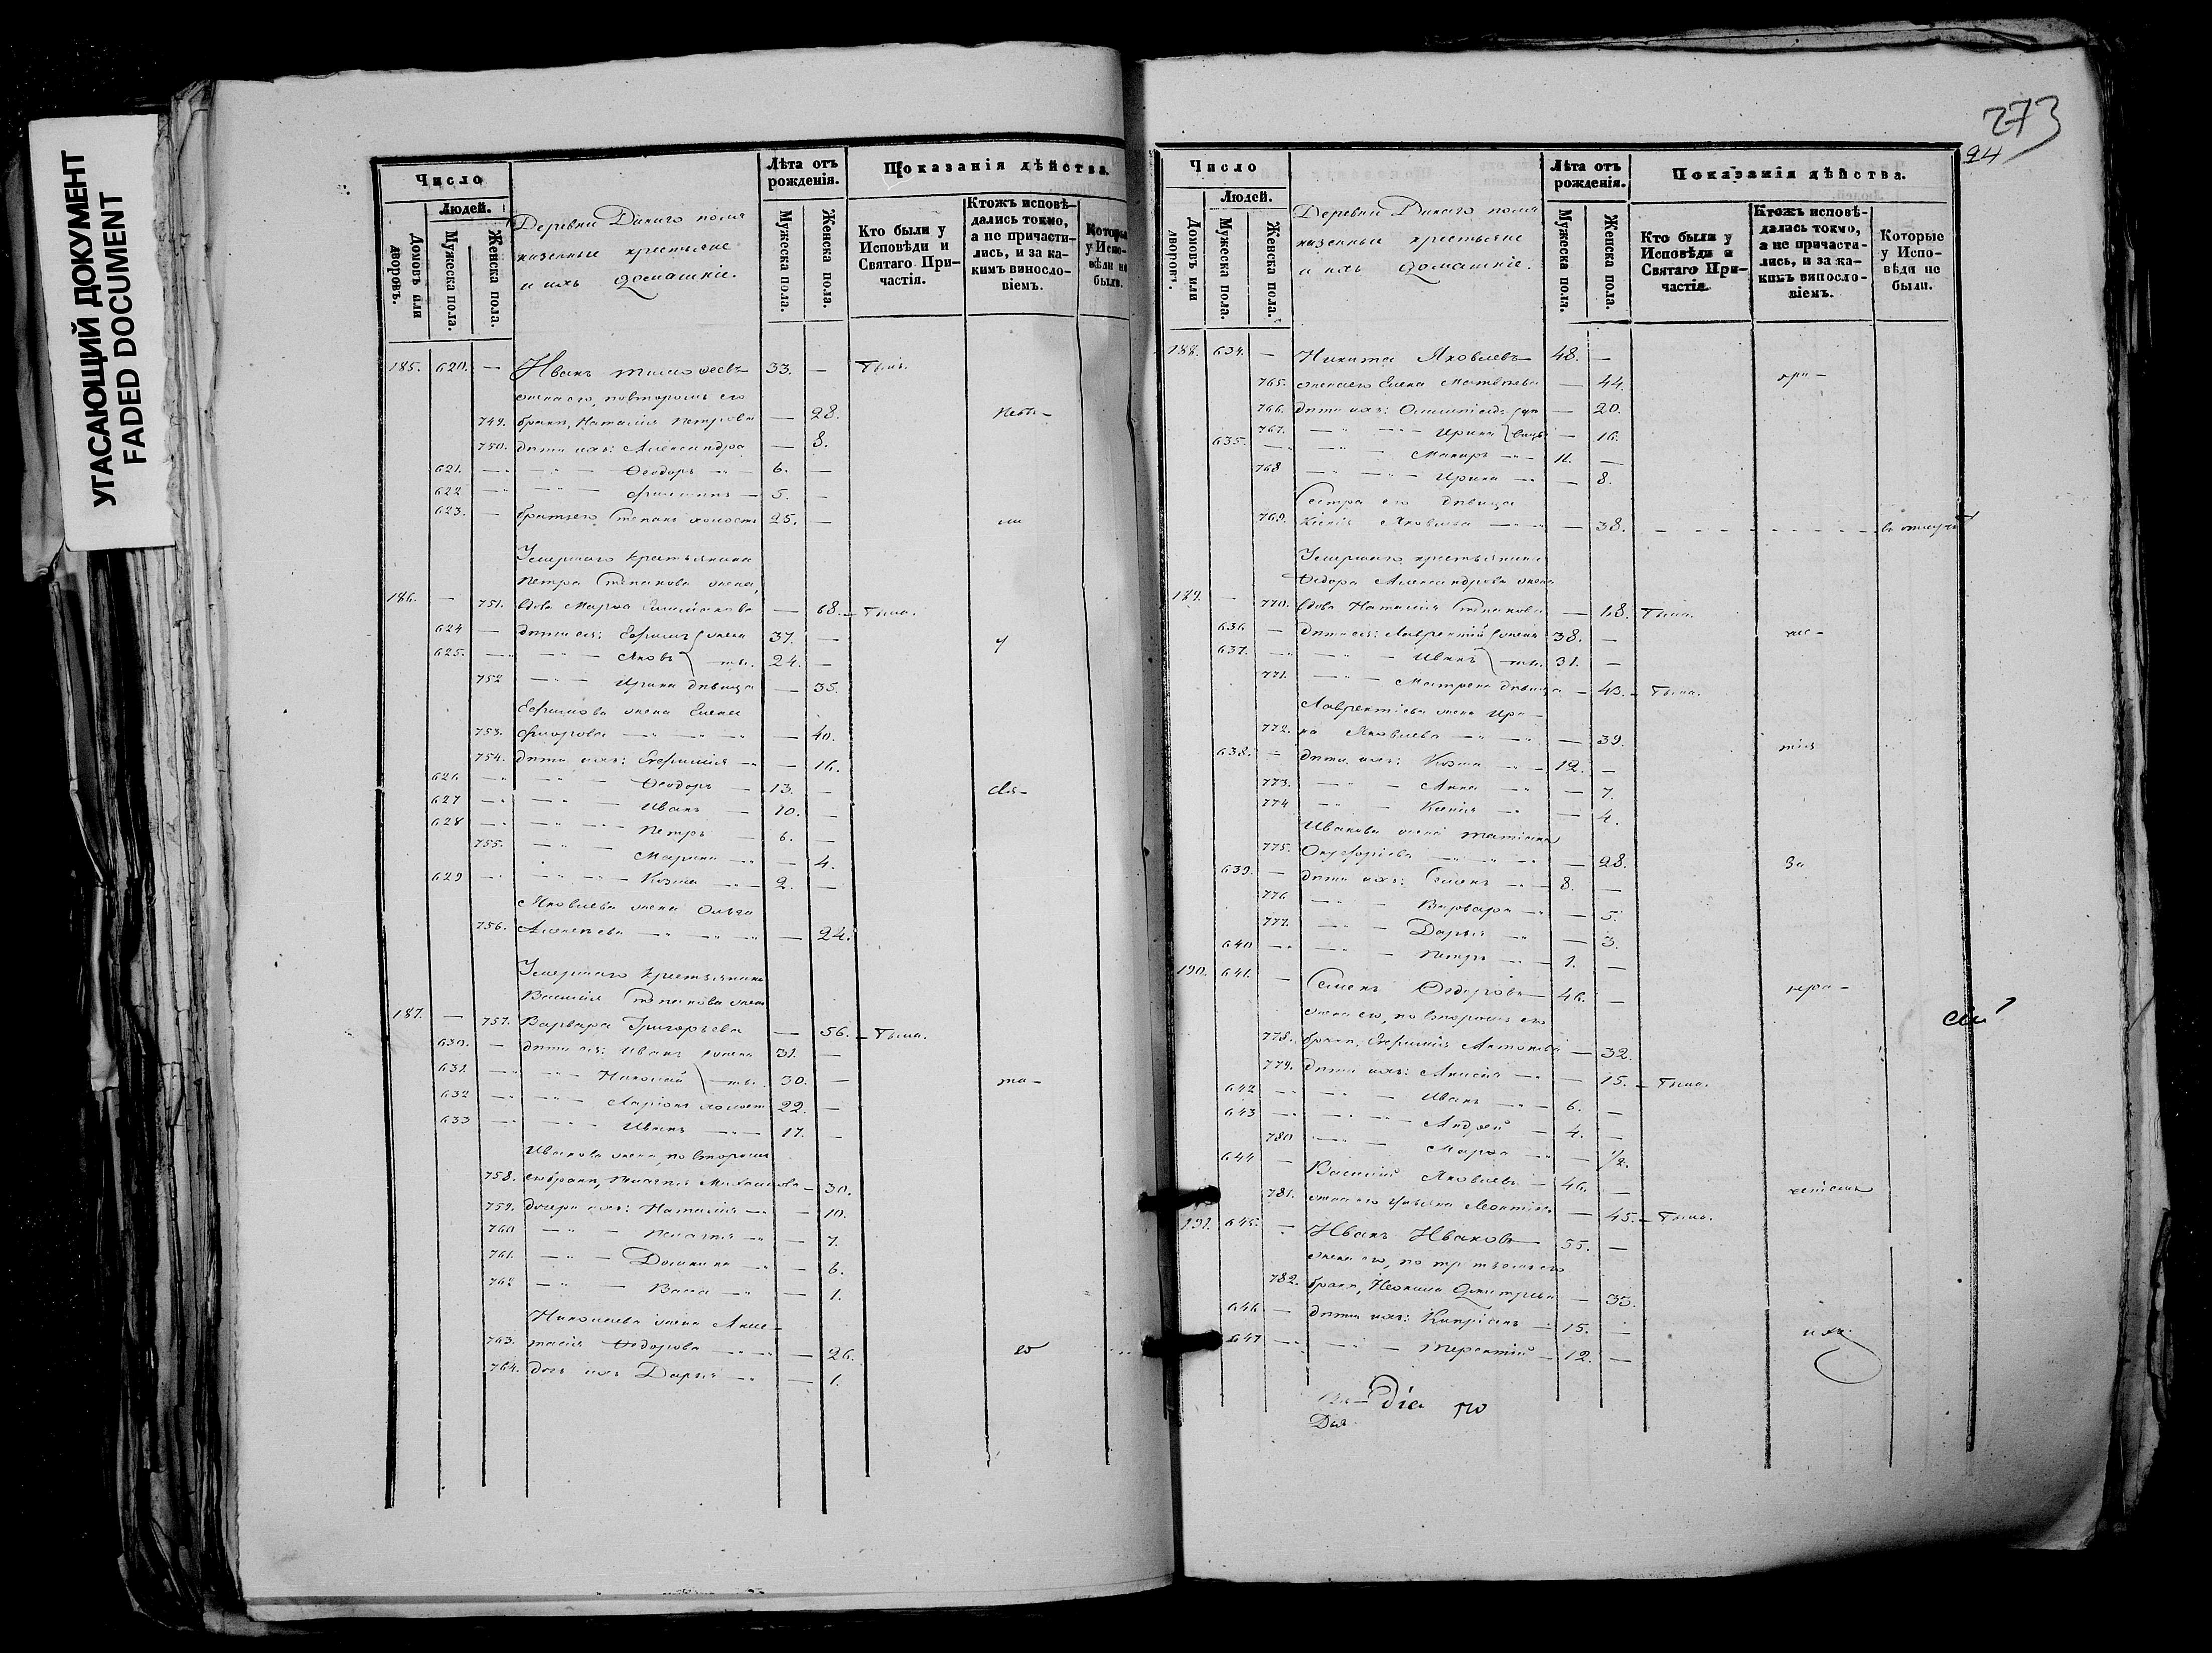 УГАСАЮЩИЙ ДОКУМЕНТ
FADED DOCUMENT
Число
Людей.
Домовъ или дворовъ.
Мужеска пола.
Женска пола.
Деревни Дикаго поля
казенные крестьяне
и ихъ домашніе.
Лѣта отъ рожденія.
Мужеска пола.
Женска пола.
Показанія дѣйства.
Кто были у Исповѣди и Святаго Причастія.
Ктожъ исповѣдались токмо, а не причастились, и за какимъ винословіемъ.
Которые у Исповѣди не были.
185. 620. — Иванъ Тимофеевъ 33. — Былъ.
жена его, по второмъ его
749. бракѣ, Наталія Петрова — 28.
750. дѣти ихъ: Александра — 8.
621. — Ѳеодоръ 6. —
622 — 5. —
623. — братъ его Степанъ холостъ 25. —
Умершаго крестьянина
Петра Степанова жена,
186. — 751. вдова Марѳа — 68. — Была.
624 — дѣти ея: Ефимъ жена 37. —
625. — Яковъ ты. 24. —
752 — Ирина дѣвица — 35.
Ефимова жена Елена
753. — 40.
754. дѣти ихъ: Евфимія — 16.
626 — Ѳеодоръ 13. —
627 — Иванъ 10. —
628 — Петръ 6. —
755. — Марина — 4.
629 — Козма 2. —
Яковлева жена Ольга
756. Алексѣева — 24.
Умершаго крестьянина
Василія Степанова жена
187. — 757. Варвара Григорьева — 56. — Была.
630. — дѣти ея: Иванъ жена 31. —
631. — Николай ты. 30. —
632 — Ларіонъ холост 22. —
633 — Иванъ 17. —
Иванова жена, по второмъ
758. его бракѣ, Пелагія Михайлова — 30.
759. дочери ихъ: Наталія — 10.
760 — Пелагія — 7.
761. — Домника — 6.
762 — Васса — 1.
Николаева жена Анас-
763. тасія Ѳедорова — 26.
764. дочь ихъ Дарья — 1.
273
94
Число
Людей.
Домовъ или дворовъ.
Мужеска пола.
Женска пола.
Деревни Дикаго поля
казенные крестьяне
и ихъ домашніе.
Лѣта отъ рожденія.
Мужеска пола.
Женска пола.
Показанія дѣйства.
Кто были у Исповѣди и Святаго Причастія.
Ктожъ исповѣдались токмо, а не причастились, и за какимъ винословіемъ.
Которые у Исповѣди не были.
188. 634. — Никита Яковлевъ 48. —
765. жена его Елена Матвѣева — 44. при-
766. дѣти ихъ: Олимпіада — 20.
767. — Ирина — 16.
635. — Макаръ 11. —
768 — Ирина — 8.
Сестра его дѣвица
769. Ксенія Яковлева — 38. въ отлучкѣ
Умершаго крестьянина
Ѳедора Александрова жена
189. — 770. вдова Наталія Степанова — 68. Была.
636 — дѣти ея: Лаврентій жена 38. —
637. — Иванъ ты. 31. —
771. — Матрена дѣвица — 43. — Была.
Лаврентіева жена Ири-
772. на Яковлева — 39. тія
638. — дѣти ихъ: Козма 12. —
773. — Анна — 7.
774 — Ксенія — 4.
Иванова жена Татіана
775. — 28. за
639. — дѣти ихъ: Семенъ 8. —
776 — Варвара — 5.
777. — Дарья — 3.
640 — Петръ 1. —
190. 641. — Семенъ Ѳедоровъ 46. —
жена его, по второмъ его
778. бракѣ, Евфимія Антонова — 32.
779. дѣти ихъ: Анисія — 15. — Была.
642 — Иванъ 6. —
643 — Андрей 4. —
780 — Марѳа — 1/2.
644 — Василій Яковлевъ 46. —
781. жена его Ульяна Леонтіева — 45. — Была.
191. 645. — Иванъ Ивановъ 55. —
жена его, по третьемъ его
782. бракѣ, Неонила Дмитріева — 35.
646 — дѣти ихъ: Кипріанъ 15. —
647 — Терентій 12. — ихъ.
Дья